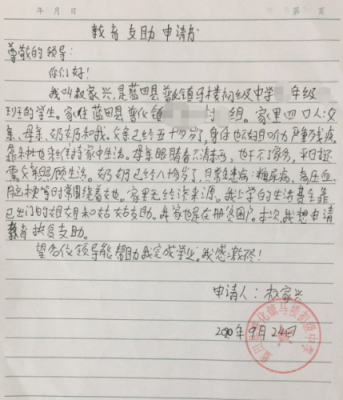 年 月 日 第 页
教育支助申请书
尊敬的领导:
你们好!
我叫权家兴,是蓝田县普化镇马楼初级中学 年级
班的学生。家住蓝田县普化镇 村 组。家里四口人父
亲、母亲、奶奶和我。父亲已经五十多岁了,身体也不好且听力严重残疾,
靠 维持家中生活。母亲眼睛看不清东西,也干不了家务,平时还
需父亲照顾生活。奶奶已经八十多岁了,且患有 糖尿病、高血压、
脑梗等时常围绕着她。家里无经济来源。我上学的生活费全靠
已出门的 和姑姑支助。我家也是在册贫困户。本次我想申请
教育扶贫支助。
望各位领导能帮助我完成学业。我感激不尽!
申请人:权家兴
2020年9月24日